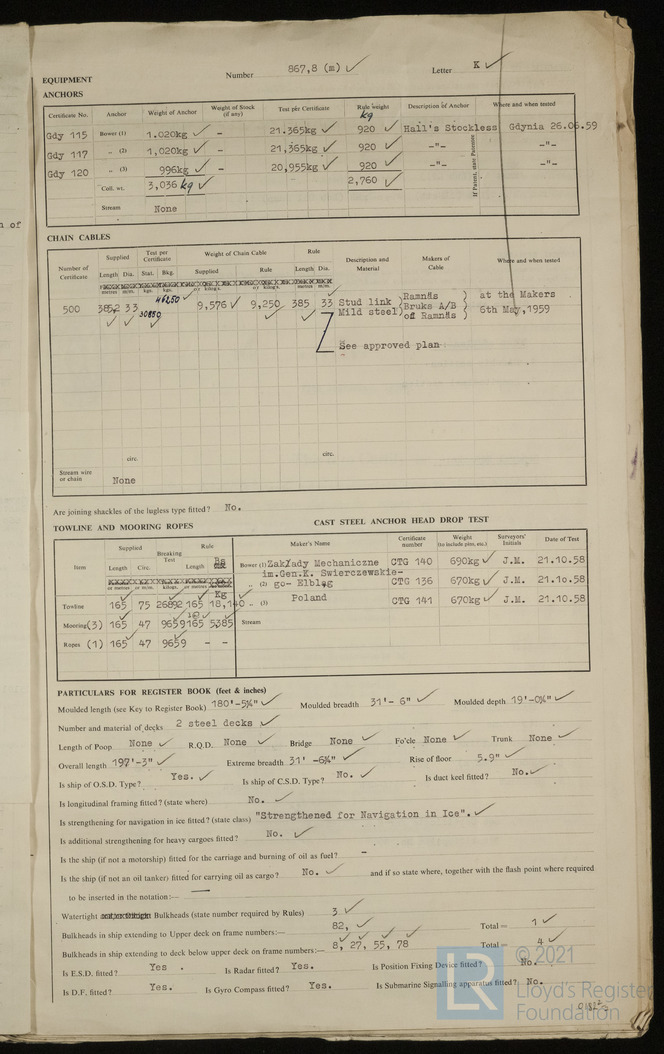 EQUIPMENT
Number 867,8 (m) ✓ Letter K ✓
ANCHORS
Certificate No. Anchor Weight of Anchor Weight of Stock (if any) Test per Certificate Rule weight kg Description of Anchor Where and when tested
Gdy 115 Bower (1) 1.020kg ✓ - 21.365kg ✓ 920 ✓ Hall's Stockless Gdynia 26.06.59
Gdy 117 „ (2) 1,020kg ✓ - 21,365kg ✓ 920 ✓ -"- -"-
Gdy 120 „ (3) 996kg ✓ - 20,955kg ✓ 920 ✓ -"- -"-
Coll. wt. 3,036 kg ✓ 2,760 ✓
If Patent, state Patentee
Stream None
n of
CHAIN CABLES
Number of Certificate Supplied Test per Certificate Weight of Chain Cable Rule Description and Material Makers of Cable Where and when tested
Length Dia. Stat. Bkg. Supplied Rule Length Dia.
metres m/m. kgs. kgs. or kilog's. metres m/m.
500 385,2 33 30850 46250 9,576 ✓ 9,250 385 33 Stud link Mild steel) (Ramnäs (Bruks A/B of Ramnäs ) at the Makers 6th May,1959
See approved plan
circ. circ.
Stream wire or chain None
Are joining shackles of the lugless type fitted? No.
TOWLINE AND MOORING ROPES
Item Supplied Breaking Test Rule
Length Circ. Length
or metres or m/m. kilogs. or metres Kg
Towline 165 75 26892 165 18,140
Mooring(3) 165 47 9659 165 5385
Ropes (1) 165 47 9659 - -
CAST STEEL ANCHOR HEAD DROP TEST
Maker's Name Certificate number Weight (to include pins, etc.) Surveyors' Initials Date of Test
Bower (1) Zakłady Mechaniczne CTG 140 690kg ✓ J.M. 21.10.58
im.Gen.K. Swierczewskie-
„ (2) go- Elbląg CTG 136 670kg ✓ J.M. 21.1o.58
„ (3) Poland CTG 141 670kg ✓ J.M. 21.10.58
Stream
PARTICULARS FOR REGISTER BOOK (feet & inches)
Moulded length (see Key to Register Book) 180'-5¼" ✓ Moulded breadth 31'- 6" ✓ Moulded depth 19'-0¼" ✓
Number and material of decks 2 steel decks ✓
Length of Poop None ✓ R.Q.D. None ✓ Bridge None ✓ Fo'cle None ✓ Trunk None ✓
Overall length 197'-3" ✓ Extreme breadth 31' -6¼" ✓ Rise of floor 5.9" ✓
Is ship of O.S.D. Type? Yes. ✓ Is ship of C.S.D. Type? No. ✓ Is duct keel fitted? No. ✓
Is longitudinal framing fitted? (state where) No. ✓
Is strengthening for navigation in ice fitted? (state class) "Strengthened for Navigation in Ice". ✓
Is additional strengthening for heavy cargoes fitted? No. ✓
Is the ship (if not a motorship) fitted for the carriage and burning of oil as fuel? -
Is the ship (if not an oil tanker) fitted for carrying oil as cargo? No. ✓ and if so state where, together with the flash point where required
to be inserted in the notation:—
Watertight Bulkheads (state number required by Rules) 3 ✓
Bulkheads in ship extending to Upper deck on frame numbers:— 82, ✓ Total = 1 ✓
Bulkheads in ship extending to deck below upper deck on frame numbers:— 8, 27, 55, 78 Total = 4 ✓
Is E.S.D. fitted? Yes . Is Radar fitted? Yes. Is Position Fixing Device fitted? No.
Is D.F. fitted? Yes. Is Gyro Compass fitted? Yes. Is Submarine Signalling apparatus fitted? No.
© 2021
LR Lloyd's Register
Foundation